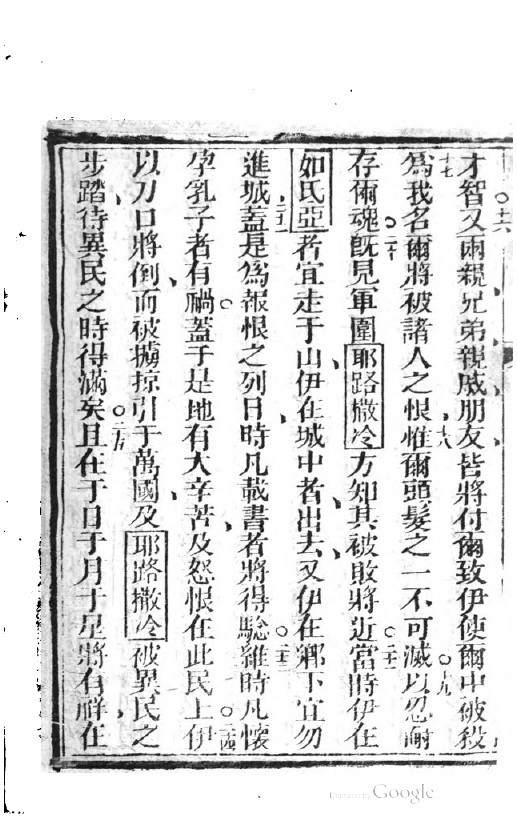 才智又兩親兄弟親戚朋友皆將付爾致伊使爾中被殺
為我名爾將被諸人之恨惟爾頭髮之一不可滅以忍耐
存爾魂旣見軍圍耶路撒冷方知其被敗將近當時伊在
如氏亞者宜走于山伊在城中者出去又伊在鄉下宜勿
進城蓋是為報恨之列日時凡載書者將得騐雖時凡懷
孕乳子者有禍蓋于是地有大辛苦及怒恨在此民上伊
以刀口將倒而被擄掠引于萬國及耶路撒冷被異民之
步踏待異民之時得滿矣且在于日于月于星將有祥在
Digitized by Google